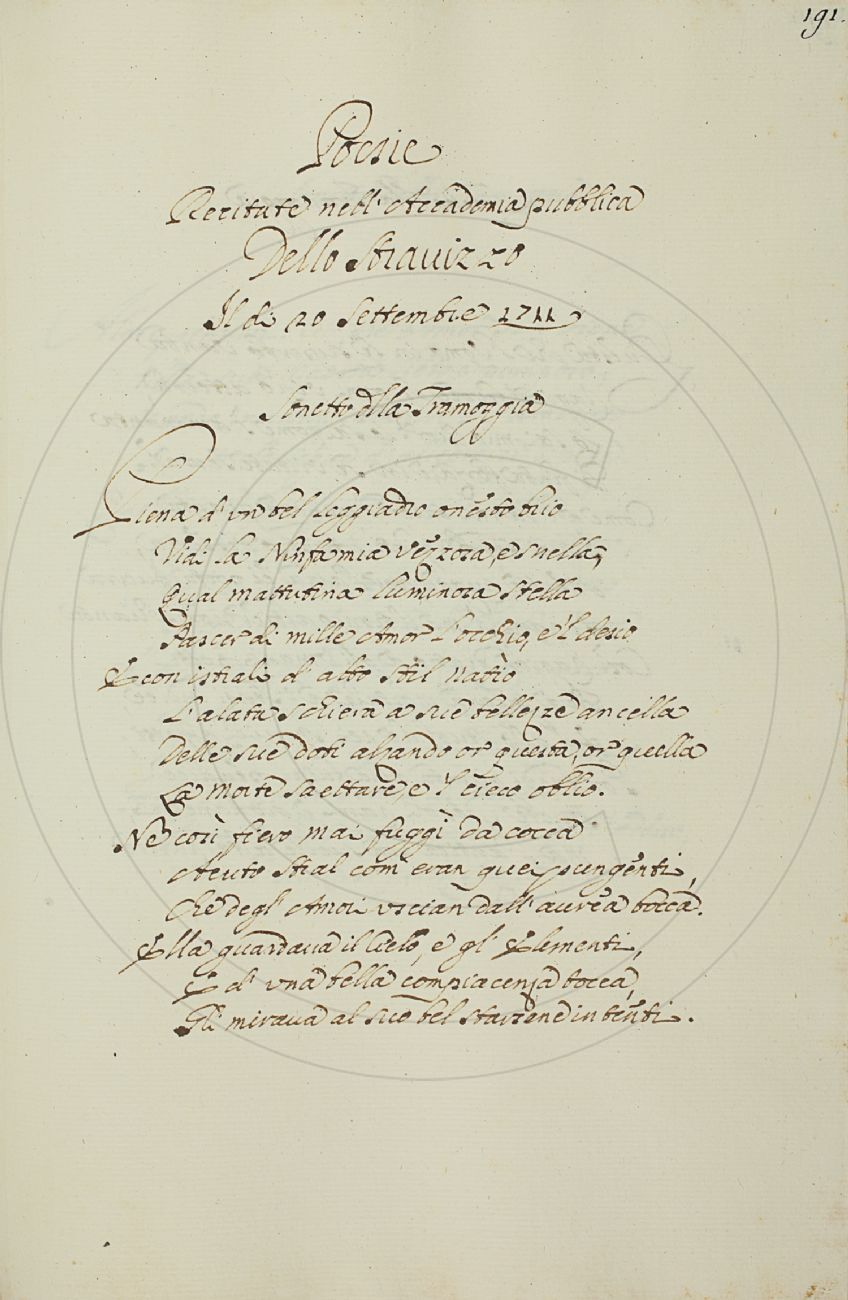 191.
Poesie
Recitate nell' Accademia pubblica
Dello Stravizzo
Il di 20 Settembre 1711
Sonetto della Tramoggia
Piena d' un bel leggiadro onesto brio
Vidi la Ninfa mia vezzosa, e snella,
Qual mattutina luminosa stella
Pascer di mille Amor l'occhio, e 'l desio
E con istrali d' alto stil natìo
L'alata schiera a sue bellezze ancella
Delle sue doti alzando or questa, or quella
La morte saettare, e 'l cieco oblìo.
Nè così fiero mai fuggì da cocca
Acuto stral com' eran quei pungenti,
Che degl' Amori uscian dall' aurea bocca.
Ella guardava il Cielo, e gl' Elementi,
E d' una bella compiacenza tocca,
Gli mirava al suo bel starsene intenti.